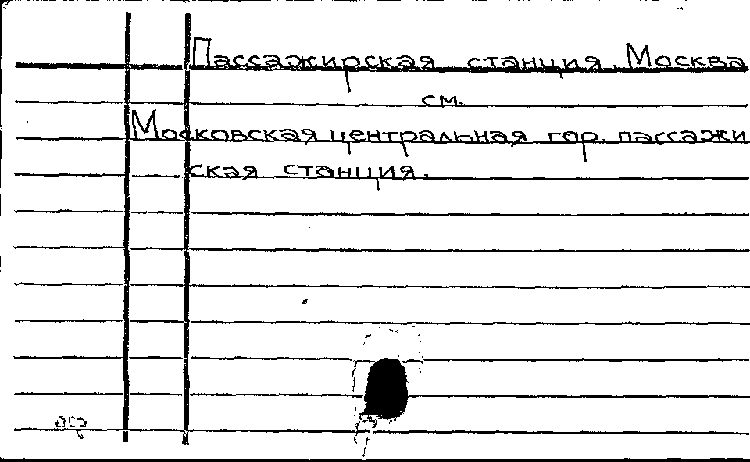 Пассажирская станция Москва
см.
Московская центральная гор. пассажи
ская станция.